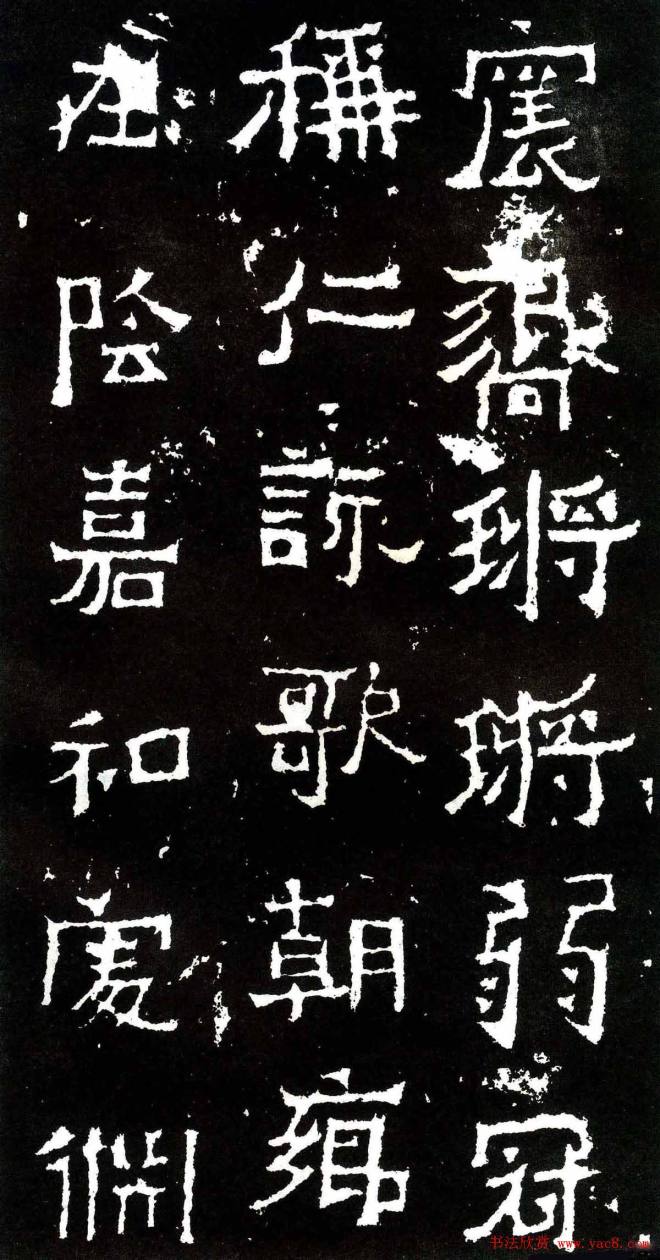 震響鏘鏘弱冠
稱仁詠歌朝鄉
在陰嘉和處淵
书法欣赏 www.yac8.com